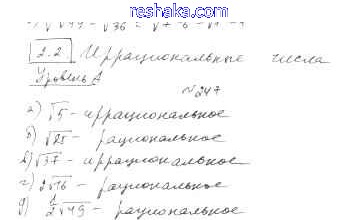 reshaka.com
√49 - √36 =
2.2. Иррациональные числа
Уровень А
№247
а) √5 - иррациональное
б) √25 - рациональное
в) √37 - иррациональное
г) 2√16 - рациональное
д) 1/2√49 - рациональное